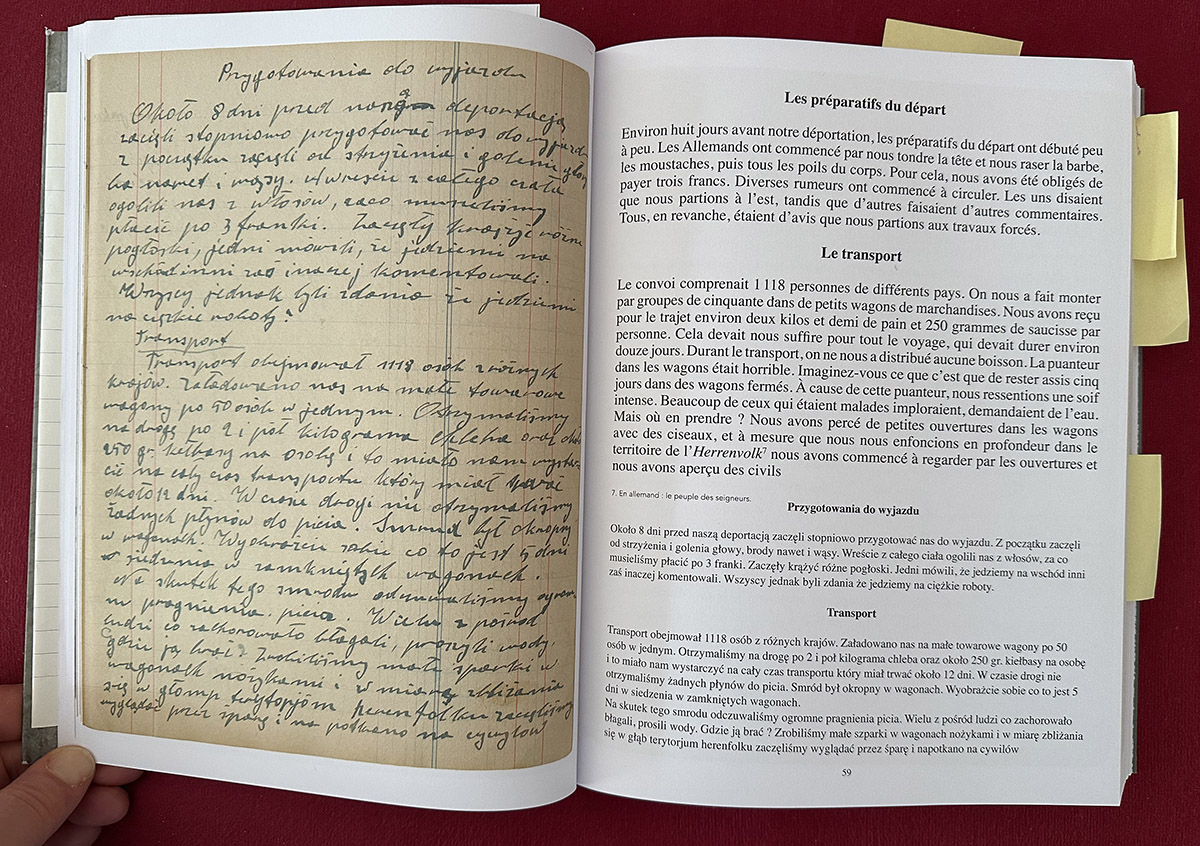 Przygotowania do wyjazdu
Około 8 dni przed naszą deportacją
zaczęli stopniowo przygotować nas do wyjazdu
z początku zaczęli od strzyżenia i golenia głowy
nawet i wąsy. Wreście z całego ciała
ogolili nas z włosów, zaco musieliśmy
płacić po 3 franki. Zaczęły krążyć różne
pogłoski, jedni mówili, że jedziemy na
wschód inni zaś inaczej komentowali.
Wszyscy jednak byli zdania że jedziemy
na ciężkie roboty.
Transport
Transport obejmował 1118 osób z różnych
krajów. Załadowano nas na małe towarowe
wagony po 50 osób w jednym. Otrzymaliśmy
na drogę po 2 i pół kilograma chleba oraz około
250 gr. kełbasy na osobę i to miało nam wystar-
cić na cały czas transportu który miał trwać
około 12 dni. W czasie drogi nie otrzymaliśmy
żadnych płynów do picia. Smród był okropny
w wagonach. Wyobraźcie sobie co to jest 5 dni
w siedzenia w zamkniętych wagonach.
Na skutek tego smrodu odczuwaliśmy ogrom-
pragnienia picia. Wielu z pośród
ludzi co zachorowało błagali, prosyli wody.
Gdzie ją brać? Zrobiliśmy małe szparki w
wagonach nożykami i w miarę zbliżania
się w głąb terytorjóm herenfolku zaczęliśmy
wyglądać przez szparę i na potkano na cywilów
Les préparatifs du départ
Environ huit jours avant notre déportation, les préparatifs du départ ont débuté peu
à peu. Les Allemands ont commencé par nous tondre la tête et nous raser la barbe,
les moustaches, puis tous les poils du corps. Pour cela, nous avons été obligés de
payer trois francs. Diverses rumeurs ont commencé à circuler. Les uns disaient
que nous partions à l'est, tandis que d'autres faisaient d'autres commentaires.
Tous, en revanche, étaient d'avis que nous partions aux travaux forcés.
Le transport
Le convoi comprenait 1 118 personnes de différents pays. On nous a fait monter
par groupes de cinquante dans de petits wagons de marchandises. Nous avons reçu
pour le trajet environ deux kilos et demi de pain et 250 grammes de saucisse par
personne. Cela devait nous suffire pour tout le voyage, qui devait durer environ
douze jours. Durant le transport, on ne nous a distribué aucune boisson. La puanteur
dans les wagons était horrible. Imaginez-vous ce que c'est que de rester assis cinq
jours dans des wagons fermés. À cause de cette puanteur, nous ressentions une soif
intense. Beaucoup de ceux qui étaient malades imploraient, demandaient de l'eau.
Mais où en prendre ? Nous avons percé de petites ouvertures dans les wagons
avec des ciseaux, et à mesure que nous nous enfoncions en profondeur dans le
territoire de l'Herrenvolk⁷ nous avons commencé à regarder par les ouvertures et
nous avons aperçu des civils
7. En allemand : le peuple des seigneurs.
Przygotowania do wyjazdu
Około 8 dni przed naszą deportacją zaczęli stopniowo przygotować nas do wyjazdu. Z początku zaczęli
od strzyżenia i golenia głowy, brody nawet i wąsy. Wreście z całego ciała ogolili nas z włosów, za co
musieliśmy płacić po 3 franki. Zaczęły krążyć różne pogłoski. Jedni mówili, że jedziemy na wschód inni
zaś inaczej komentowali. Wszyscy jednak byli zdania że jedziemy na ciężkie roboty.
Transport
Transport obejmował 1118 osób z różnych krajów. Załadowano nas na małe towarowe wagony po 50
osób w jednym. Otrzymaliśmy na drogę po 2 i poł kilograma chleba oraz około 250 gr. kiełbasy na osobę
i to miało nam wystarczyć na cały czas transportu który miał trwać około 12 dni. W czasie drogi nie
otrzymaliśmy żadnych płynów do picia. Smród był okropny w wagonach. Wyobraźcie sobie co to jest 5
dni w siedzenia w zamkniętych wagonach.
Na skutek tego smrodu odczuwaliśmy ogromne pragnienia picia. Wielu z pośród ludzi co zachorowało
błagali, prosili wody. Gdzie ją brać ? Zrobiliśmy małe szparki w wagonach nożykami i w miarę zbliżania
się w głąb terytorjum herenfolku zaczęliśmy wyglądać przez śparę i napotkano na cywilów
59